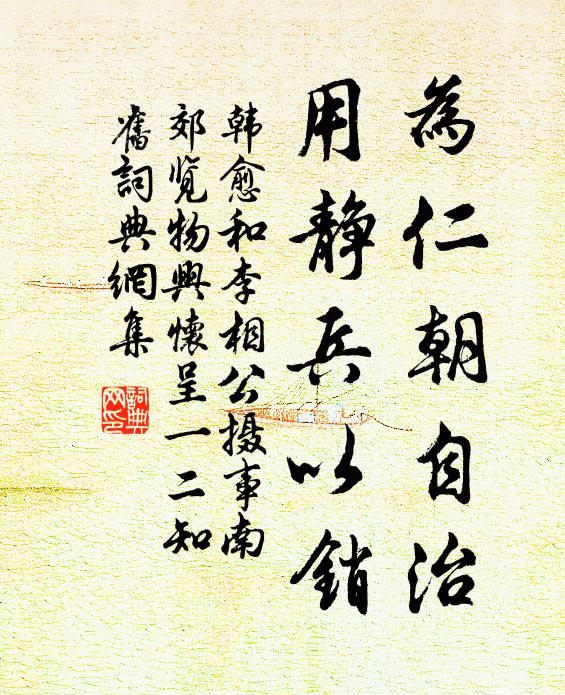 為仁朝自治
用静兵以銷
韩愈和李相公摄事南
郊览物興懷呈一二知
舊詞典網集
詞典
网印